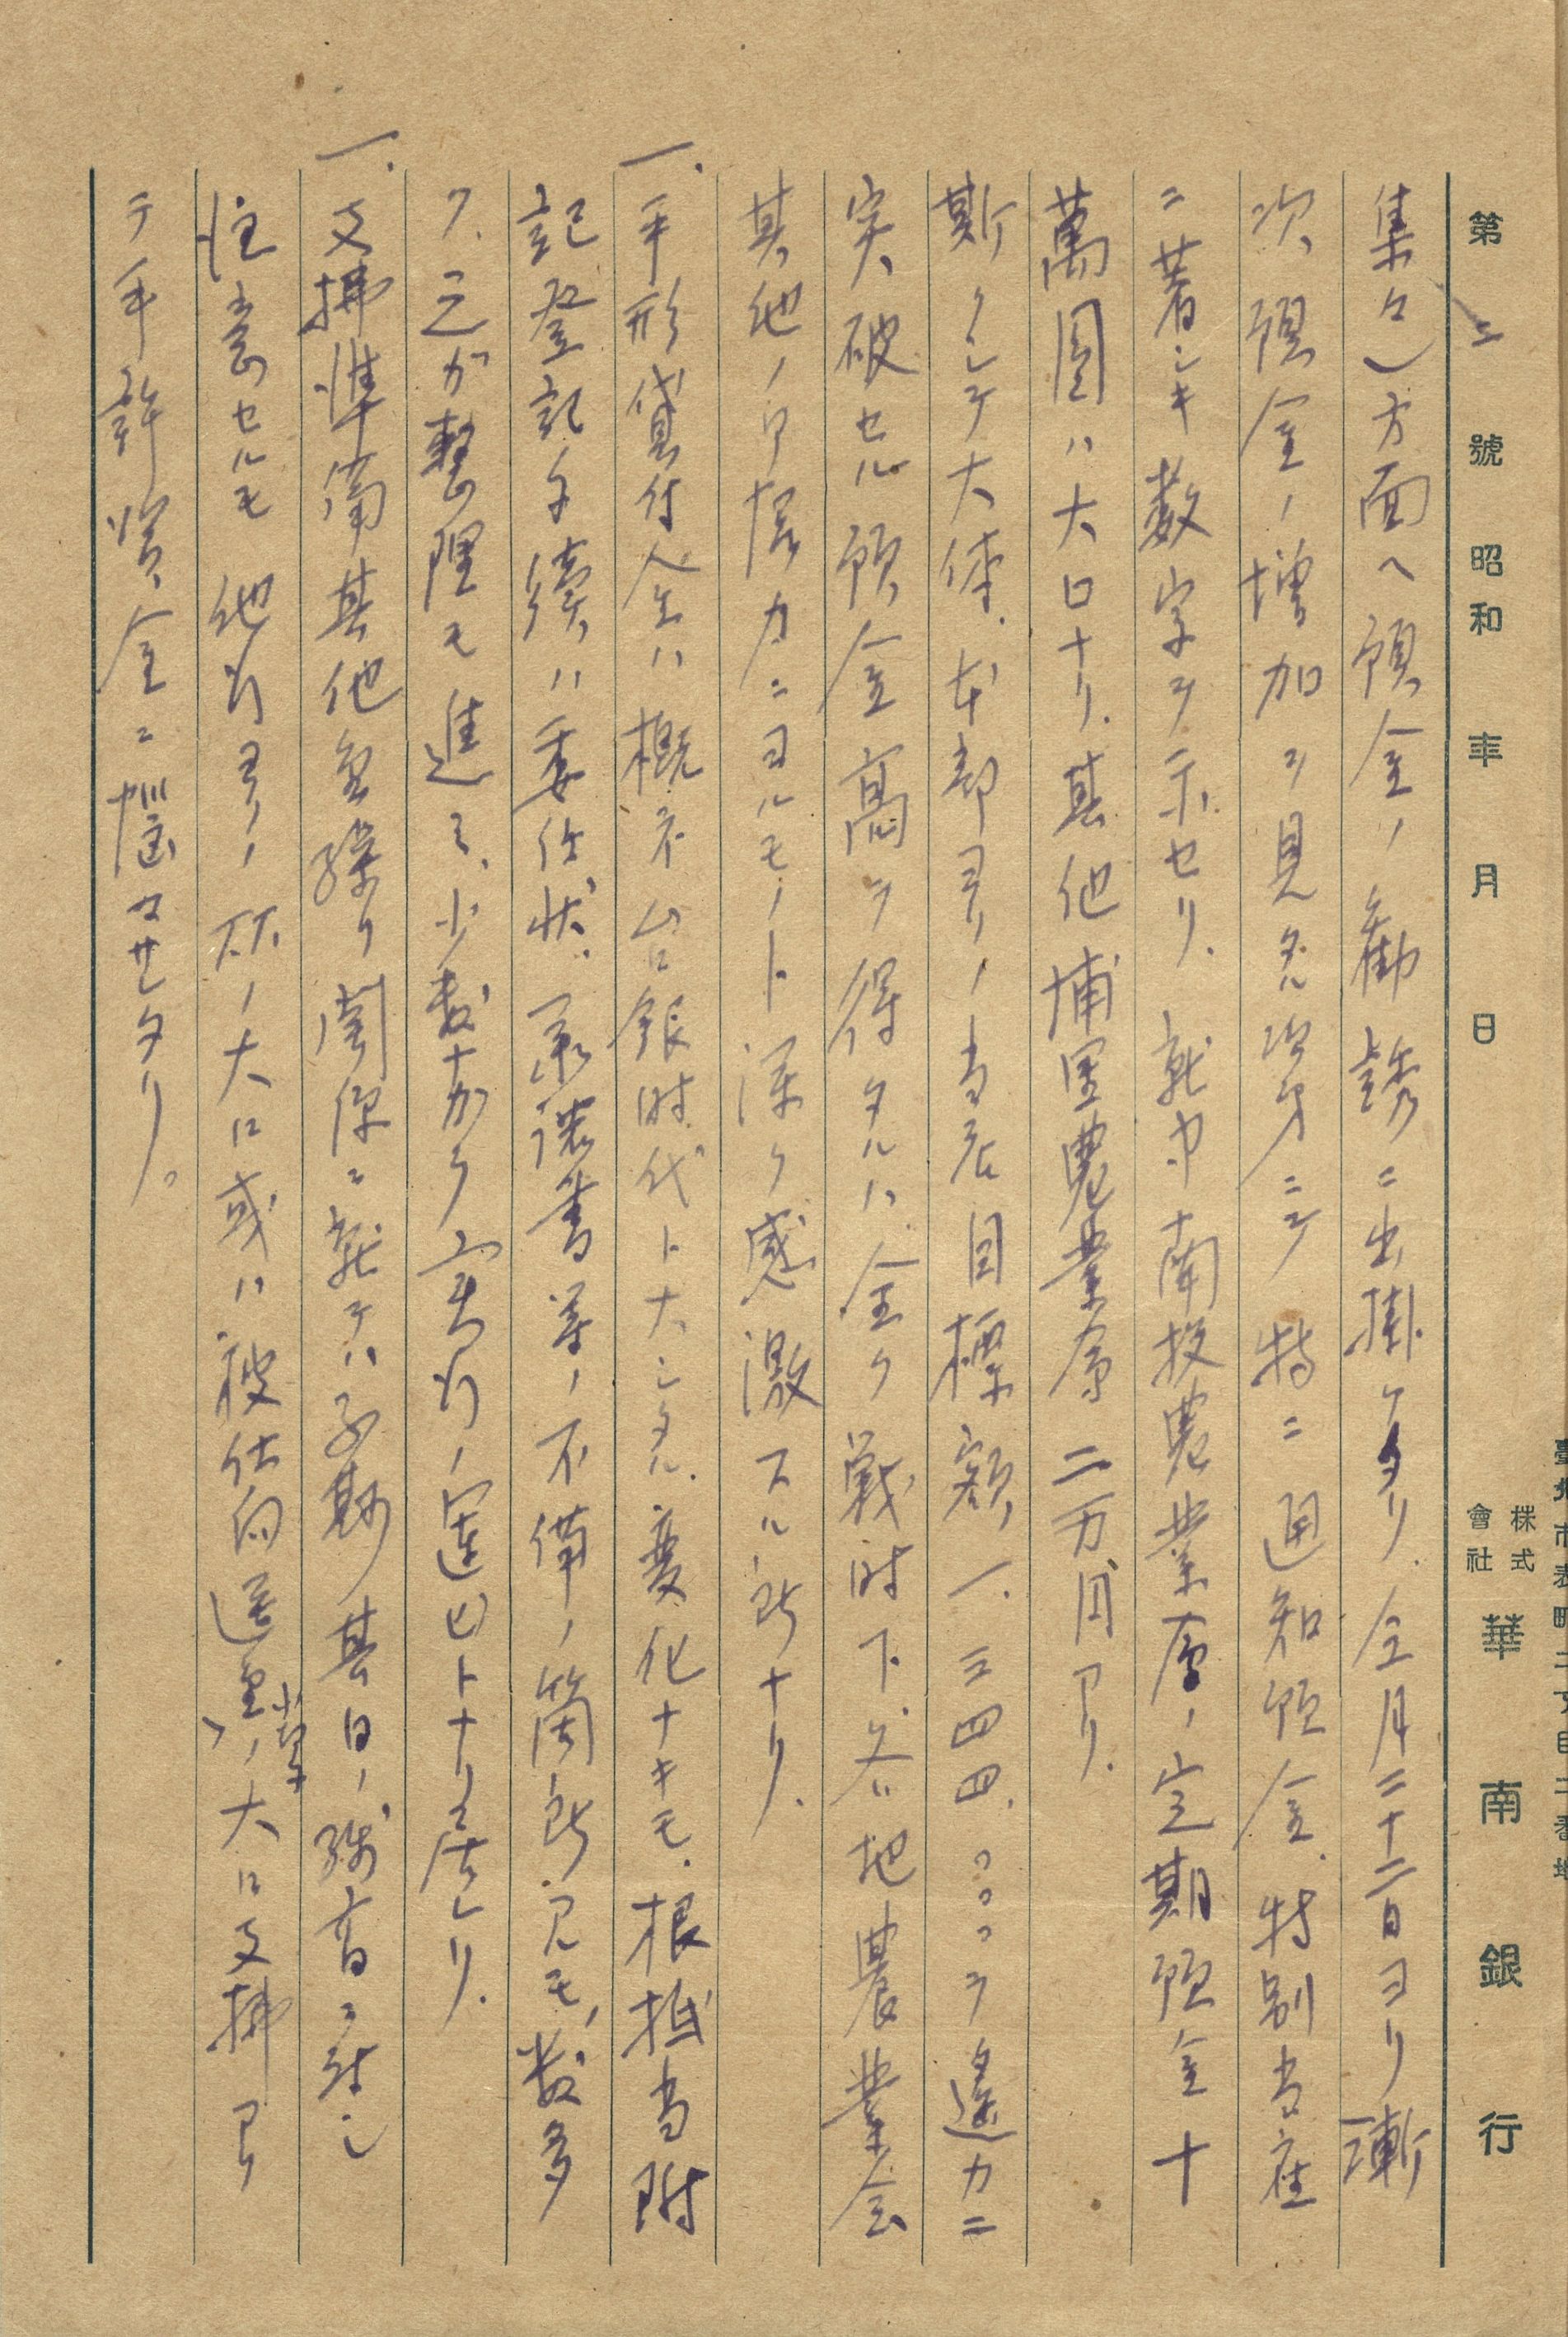 臺北市表町二丁目二番地
株式會社 華南銀行
第 三 號 昭和 年 月 日
集々)方面ヘ預金ノ勧誘ニ出掛ケタリ.今月二十二日ヨリ漸
次預金ノ増加ヲ見タル次第ニテ特ニ通知預金、特別当座
ニ著シキ数字ヲ示セリ.就中南投農業会ノ定期預金十
萬圓ハ大口ナリ.其他埔里農業会二万円アリ.
斯クシテ大体.本部ヨリノ当店目標額、一.三四四.〇〇〇ヲ遙カニ
突破セル預金高ヲ得タルハ.全ク戦時下.各地農業会
其他ノ御尽力ニヨルモノト深ク感激スル所ナリ.
一.手形貸付金ハ概ネ台銀時代ト大シタル変化ナキモ.根抵当附
記登記手続ハ委任状.承諾書等ノ不備ノ箇所アルモ、数多
ク、之ガ整理モ進ミ、少数ナガラ実行ノ運ビトナリ居レリ.
一.支拂準備其他資金繰リ関係ニ就テハ予期其日ノ残高ニ対シ
注意セルモ 他行ヨリノ 大口或ハ被仕向送金、小切手ノ大口支拂アリ
テ手許資金ニ悩マサレタリ。